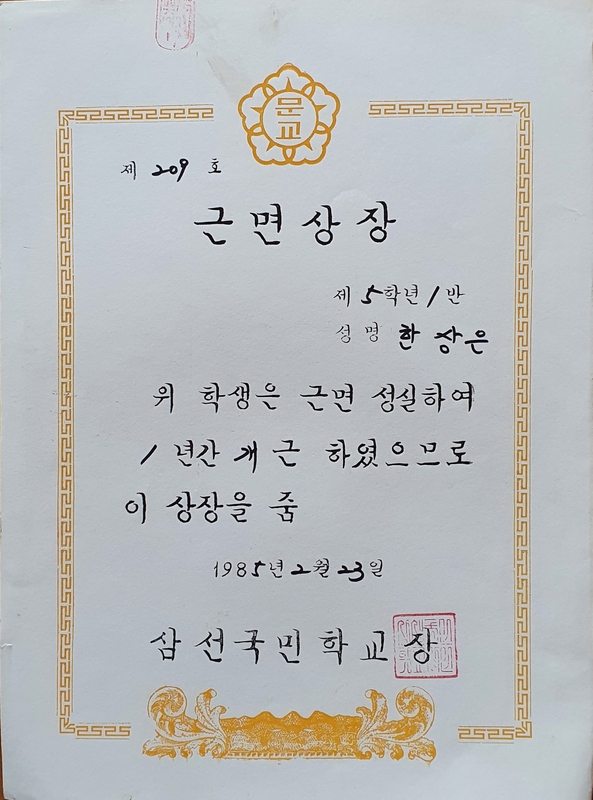 문교
제 209 호
근면상장
제 5학년 1 반
성명 한상은
위 학생은 근면 성실하여
1 년간 개근 하였으므로
이 상장을 줌
1985년 2월 23일
삼선국민학교장